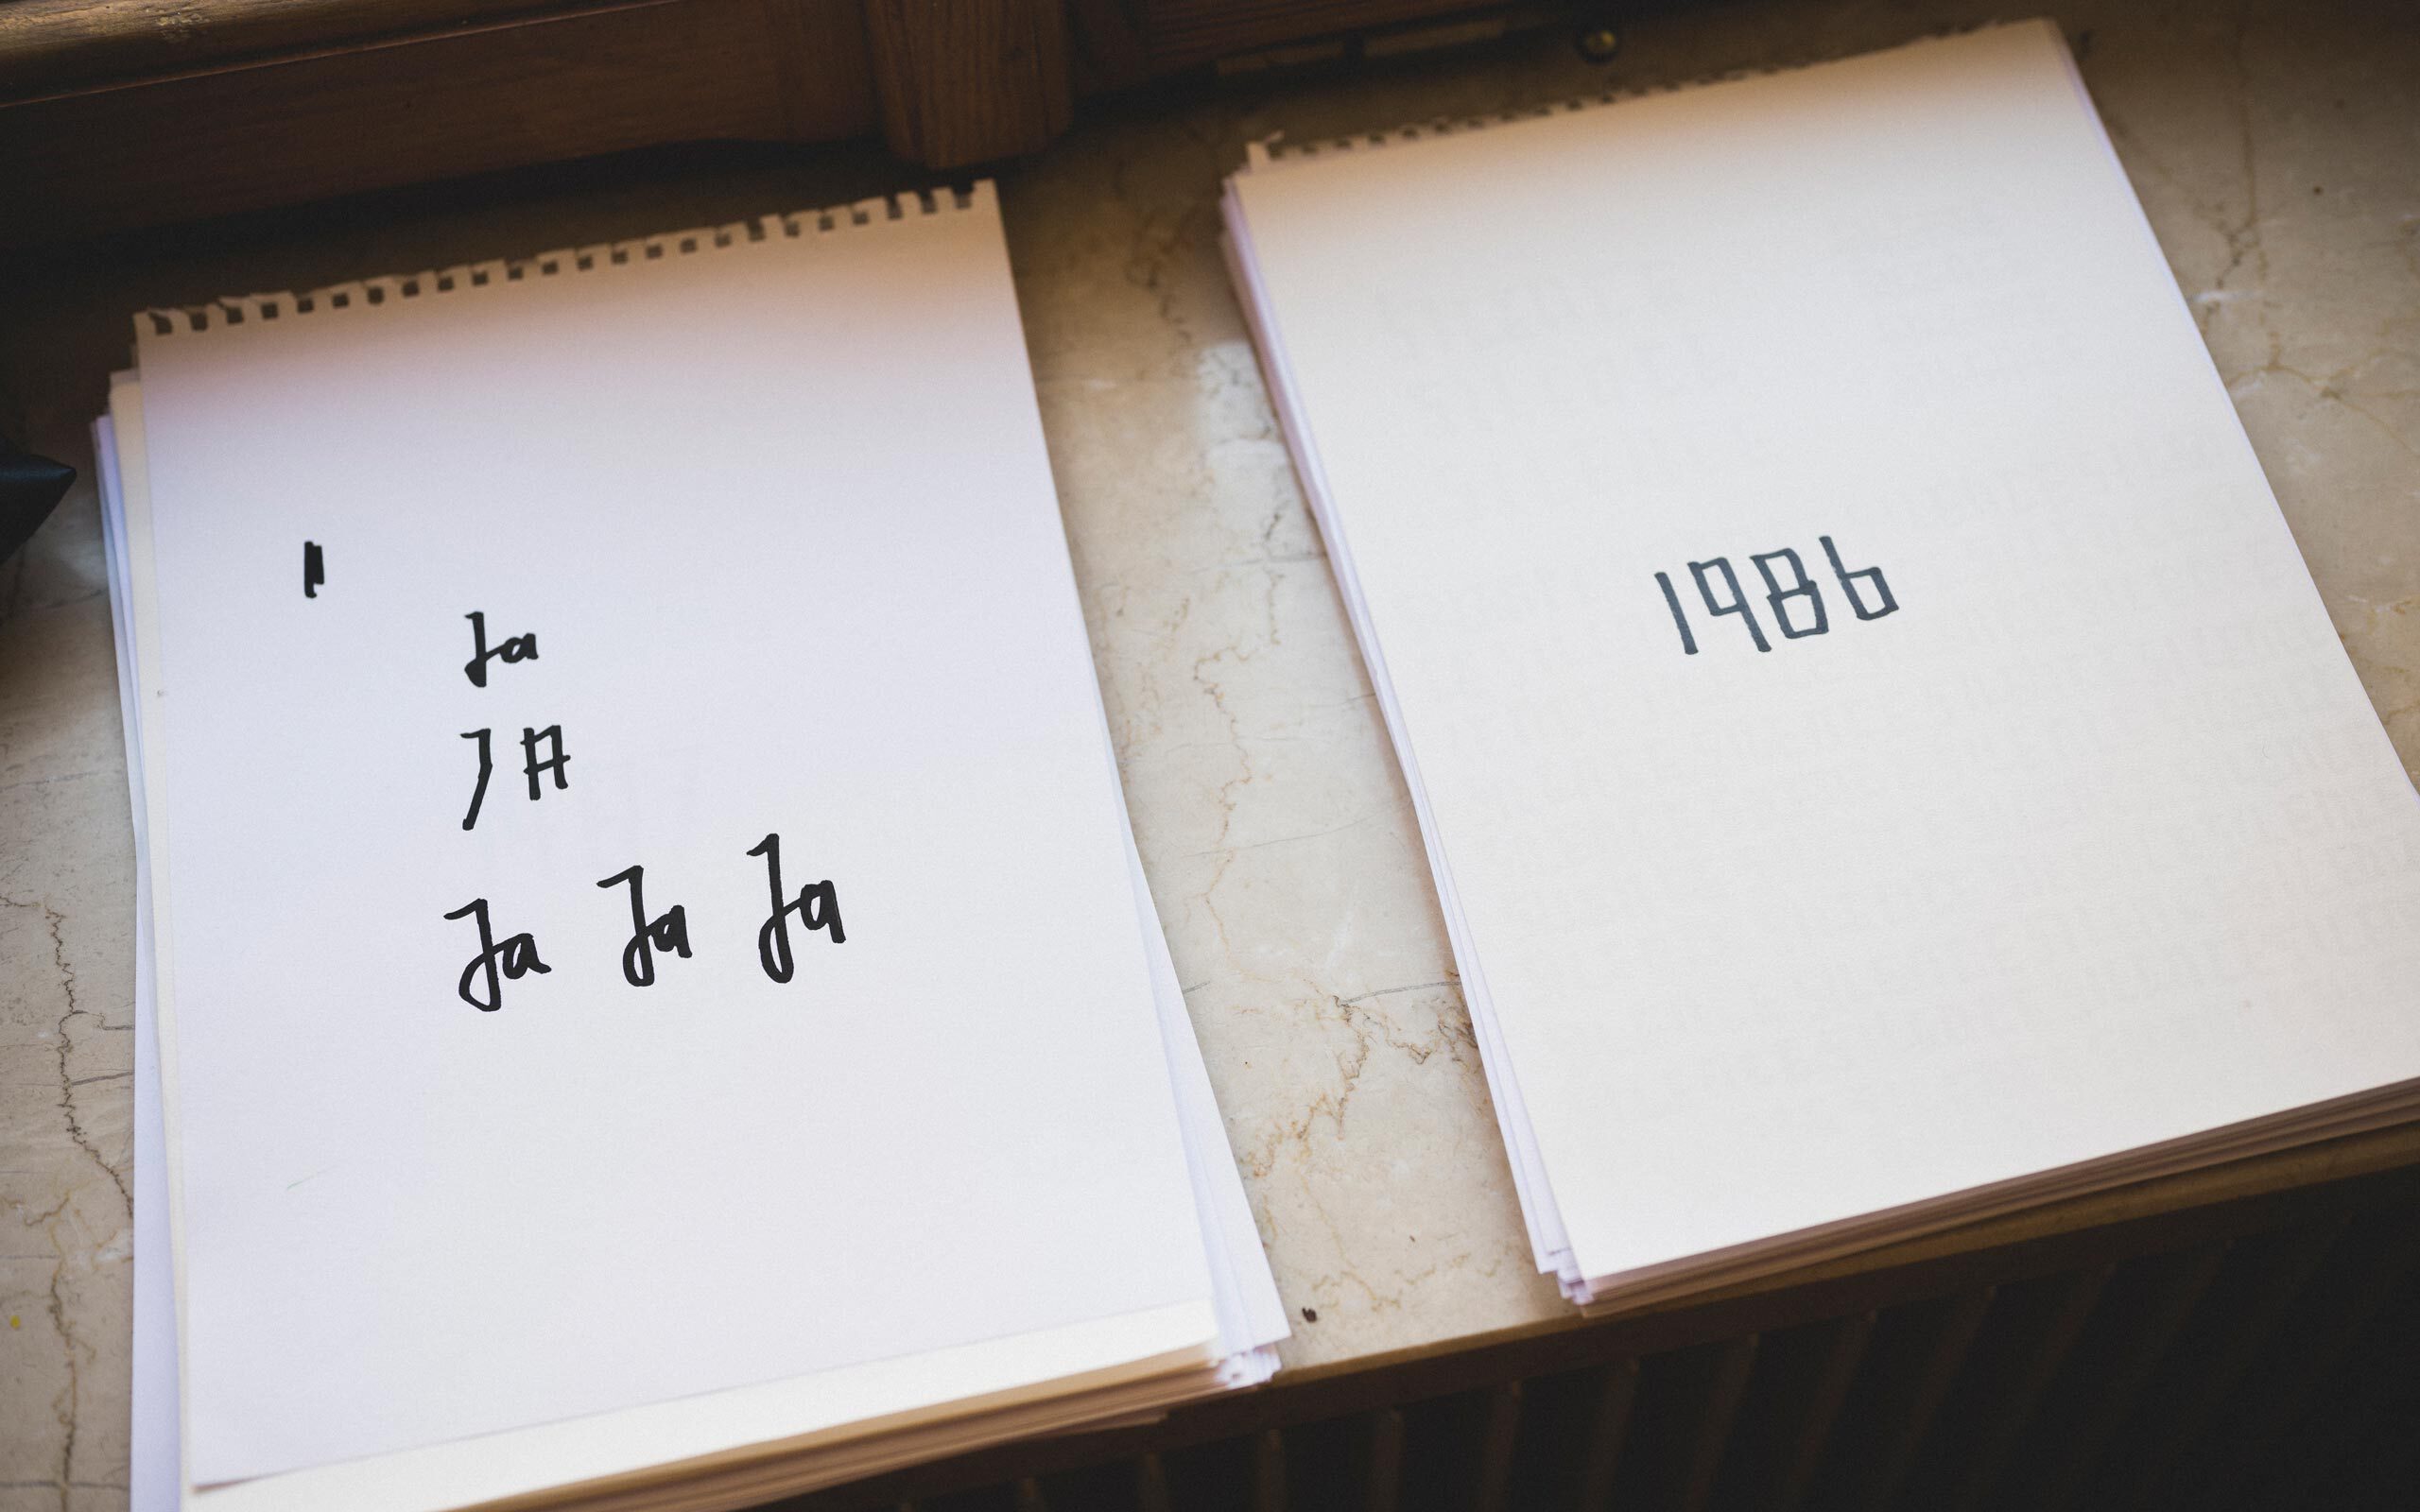 Ja
JA
Ja Ja Ja
1986